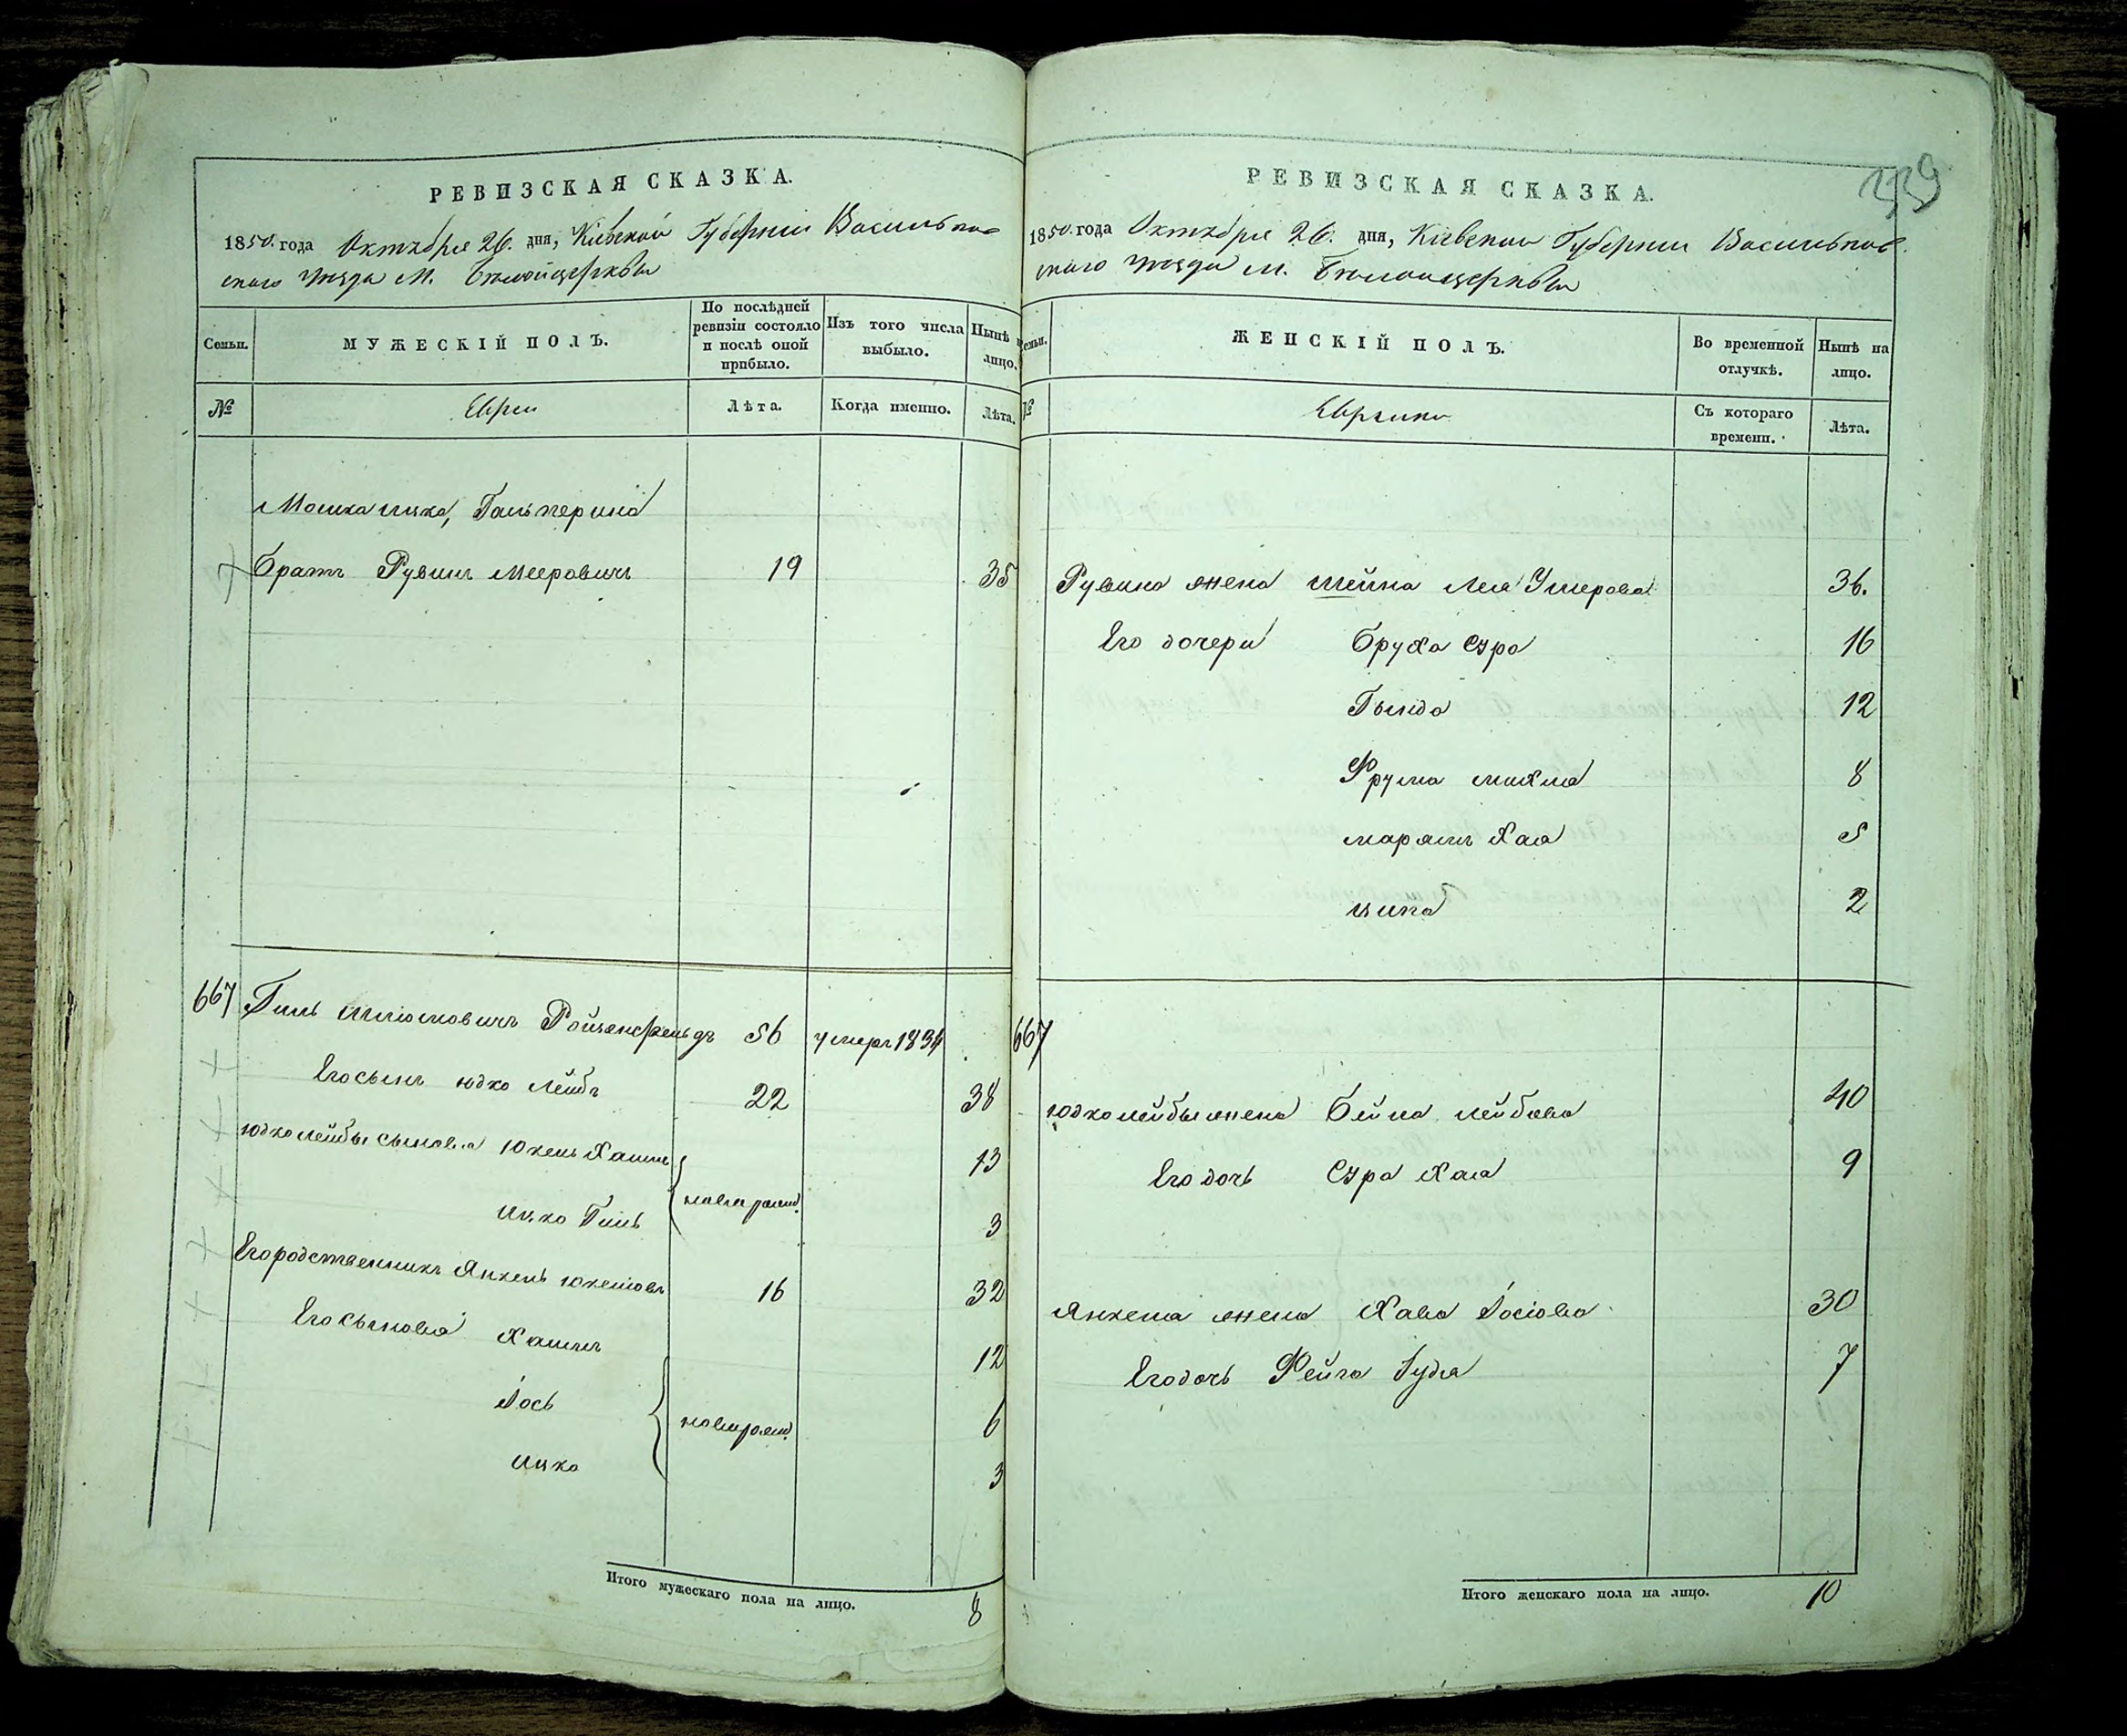 339
РЕВИЗСКАЯ СКАЗКА.
1850 года Октября 26. дня, Киевской Губернии Васильков-
скаго уезда М. Белойцеркви
Семьи. МУЖЕСКІЙ ПОЛЪ. По послѣдней ревизіи состояло и послѣ оной прибыло. Изъ того числа выбыло. Нынѣ на лицо.
№ Евреи Лѣта. Когда именно. Лѣта.
Мошка Ицка, Гальперина
братъ Рувинъ Мееровичъ 19 35
667 Гиль Шліомовичъ Ройценфельдъ 56 умеръ 1834
Его сынъ Юдко Лейбъ 22 38
Юдко Лейбы сыновья Юкель Хаимъ 13
новорожд.
Ицко Гиль 3
Его родственникъ Янкель Юкеліовъ 16 32
Его сыновья Хаимъ 12
Іось новорожд. 6
Ицко 3
Итого мужескаго пола на лицо. 8
РЕВИЗСКАЯ СКАЗКА.
1850 года Октября 26. дня, Киевской Губернии Васильков-
скаго уезда М. Белойцеркви
Семьи. ЖЕНСКІЙ ПОЛЪ. Во временной отлучкѣ. Нынѣ на лицо.
№ Еврейки Съ котораго времени. Лѣта.
Рувина жена Шейна Лея Умерова 36.
Его дочери Бруха Сура 16
Гинда 12
Фрума Михла 8
Марямъ Хая 5
Ципа 2
667
Юдко Лейбы жена Бейла Лейбова 40
Его дочь Сура Хая 9
Янкеля жена Хава Іосіова 30
Его дочь Фейга Гудя 7
Итого женскаго пола на лицо. 10